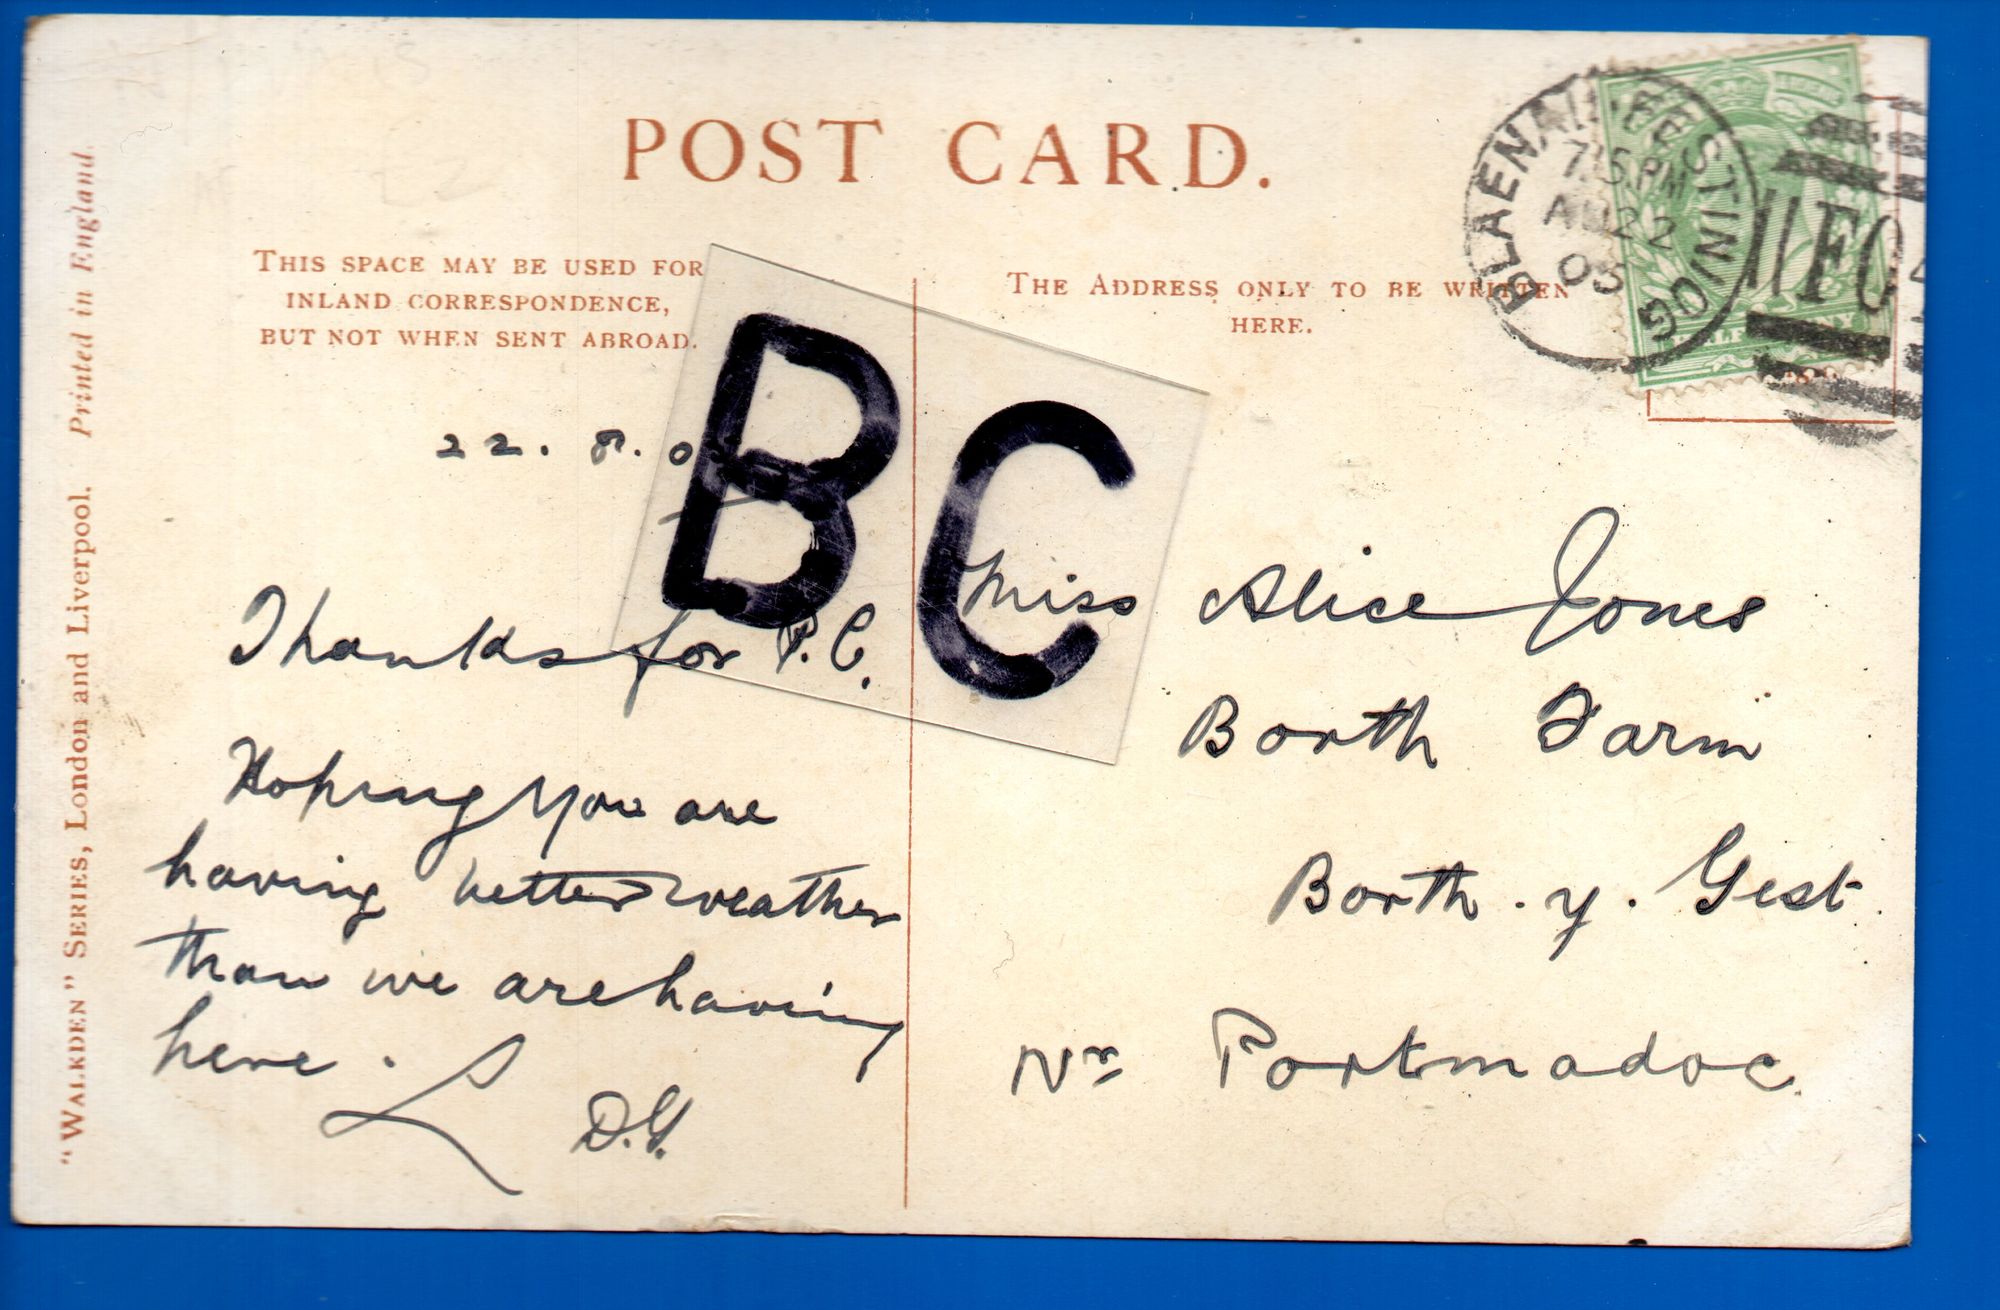 POST CARD.
THIS SPACE MAY BE USED FOR
INLAND CORRESPONDENCE,
BUT NOT WHEN SENT ABROAD.
THE ADDRESS ONLY TO BE WRITTEN
HERE.
BLAENAU-FESTINIOG
7.15 PM
AU 22
05
FO
HALFPENNY
BC
22. 8. 0
Thanks for P.C.
Hoping you are
having better weather
than we are having
here.
D.G.
Miss Alice Jones
Borth Farm
Borth . y . Gest.
Nr Portmadoc.
"WALKDEN" SERIES, London and Liverpool. Printed in England.